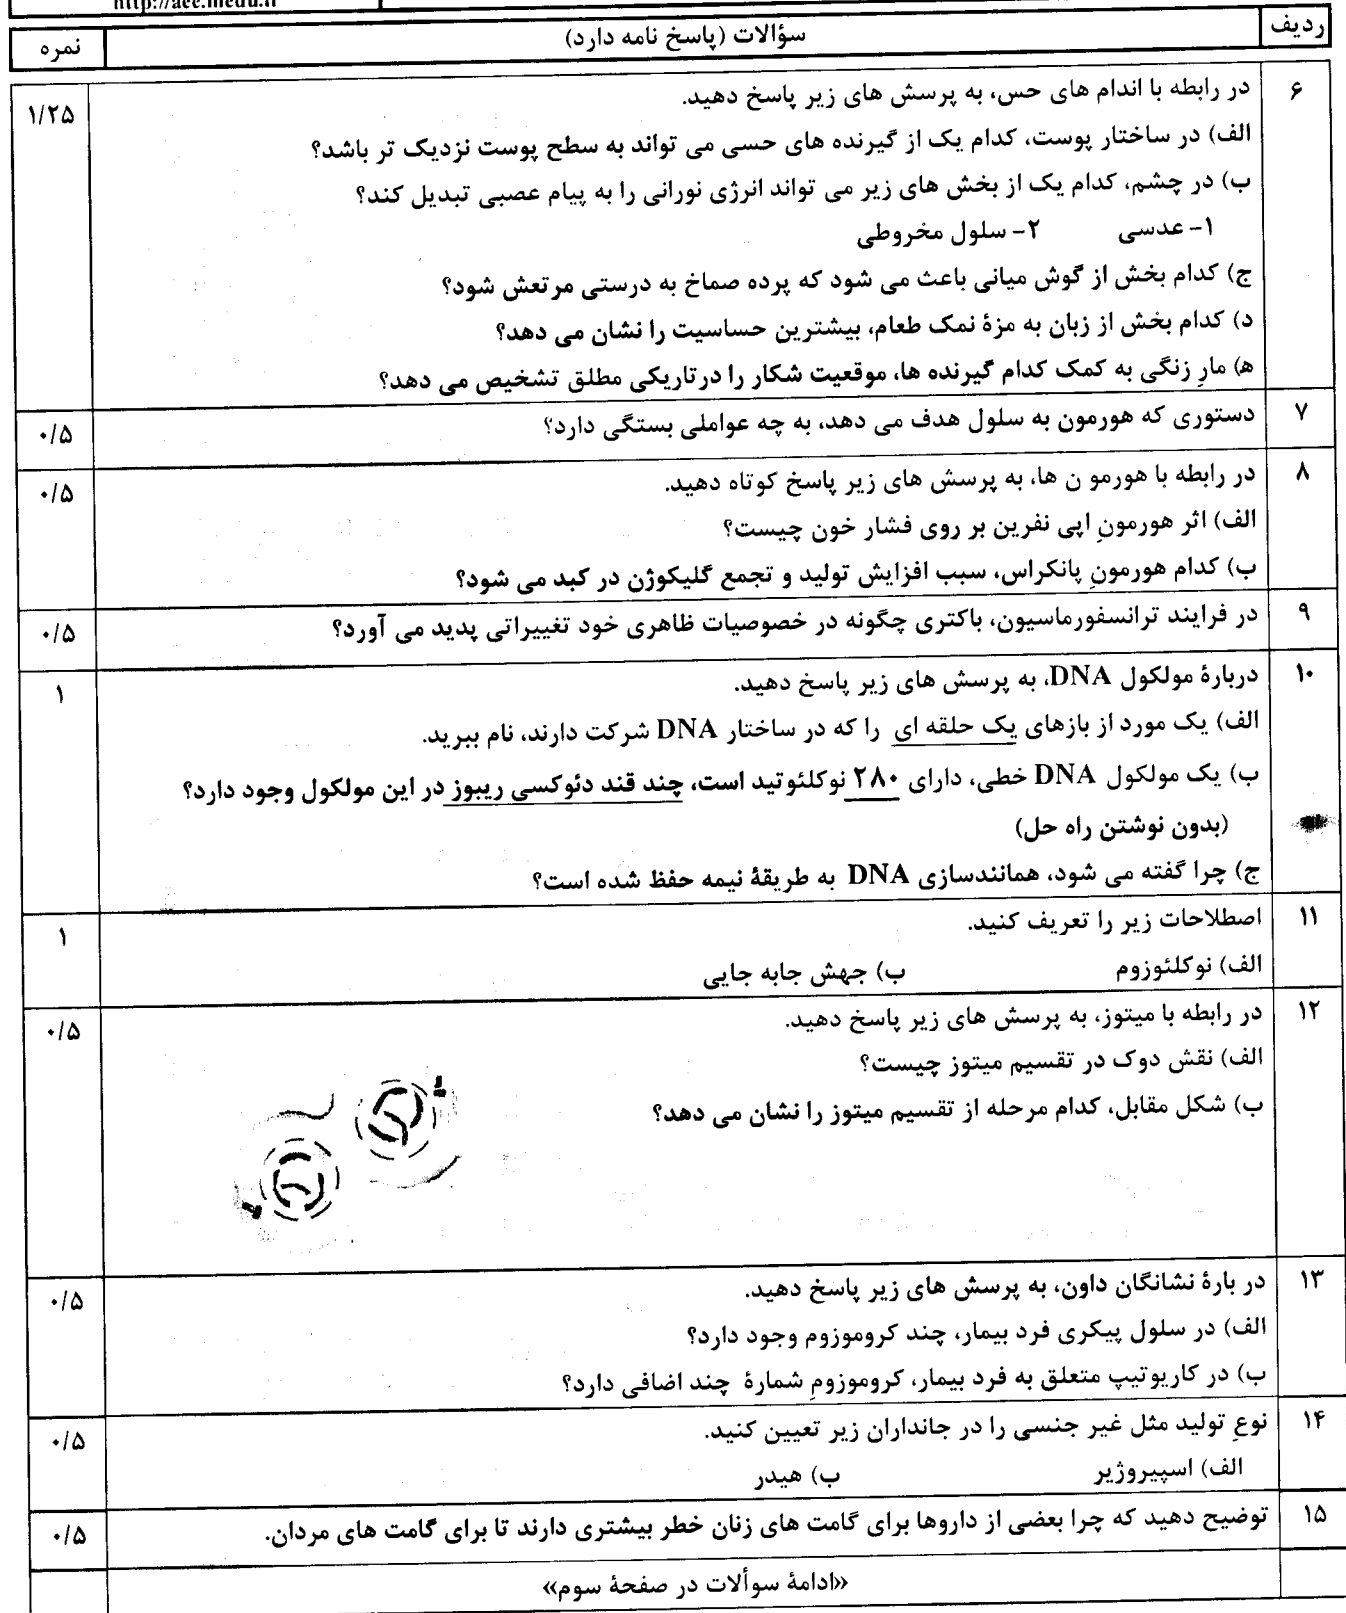 http://aee.medu.ir
ردیف سؤالات (پاسخ نامه دارد) نمره
۶ در رابطه با اندام های حس، به پرسش های زیر پاسخ دهید. ۱/۲۵
الف) در ساختار پوست، کدام یک از گیرنده های حسی می تواند به سطح پوست نزدیک تر باشد؟
ب) در چشم، کدام یک از بخش های زیر می تواند انرژی نورانی را به پیام عصبی تبدیل کند؟
۱- عدسی ۲- سلول مخروطی
ج) کدام بخش از گوش میانی باعث می شود که پرده صماخ به درستی مرتعش شود؟
د) کدام بخش از زبان به مزۀ نمک طعام، بیشترین حساسیت را نشان می دهد؟
ه) مارِ زنگی به کمک کدام گیرنده ها، موقعیت شکار را درتاریکی مطلق تشخیص می دهد؟
۷ دستوری که هورمون به سلول هدف می دهد، به چه عواملی بستگی دارد؟ ۰/۵
۸ در رابطه با هورمو ن ها، به پرسش های زیر پاسخ کوتاه دهید. ۰/۵
الف) اثر هورمونِ اپی نفرین بر روی فشار خون چیست؟
ب) کدام هورمونِ پانکراس، سبب افزایش تولید و تجمع گلیکوژن در کبد می شود؟
۹ در فرایند ترانسفورماسیون، باکتری چگونه در خصوصیات ظاهری خود تغییراتی پدید می آورد؟ ۰/۵
۱۰ دربارۀ مولکول DNA، به پرسش های زیر پاسخ دهید. ۱
الف) یک مورد از بازهای یک حلقه ای را که در ساختار DNA شرکت دارند، نام ببرید.
ب) یک مولکول DNA خطی، دارای ۲۸۰ نوکلئوتید است، چند قند دئوکسی ریبوز در این مولکول وجود دارد؟
(بدون نوشتن راه حل)
ج) چرا گفته می شود، همانندسازی DNA به طریقۀ نیمه حفظ شده است؟
۱۱ اصطلاحات زیر را تعریف کنید. ۱
الف) نوکلئوزوم ب) جهش جابه جایی
۱۲ در رابطه با میتوز، به پرسش های زیر پاسخ دهید. ۰/۵
الف) نقش دوک در تقسیم میتوز چیست؟
ب) شکل مقابل، کدام مرحله از تقسیم میتوز را نشان می دهد؟
۱۳ در بارۀ نشانگان داون، به پرسش های زیر پاسخ دهید. ۰/۵
الف) در سلول پیکری فرد بیمار، چند کروموزوم وجود دارد؟
ب) در کاریوتیپ متعلق به فرد بیمار، کروموزومِ شمارۀ چند اضافی دارد؟
۱۴ نوعِ تولید مثل غیر جنسی را در جانداران زیر تعیین کنید. ۰/۵
الف) اسپیروژیر ب) هیدر
۱۵ توضیح دهید که چرا بعضی از داروها برای گامت های زنان خطر بیشتری دارند تا برای گامت های مردان. ۰/۵
«ادامۀ سوألات در صفحۀ سوم»